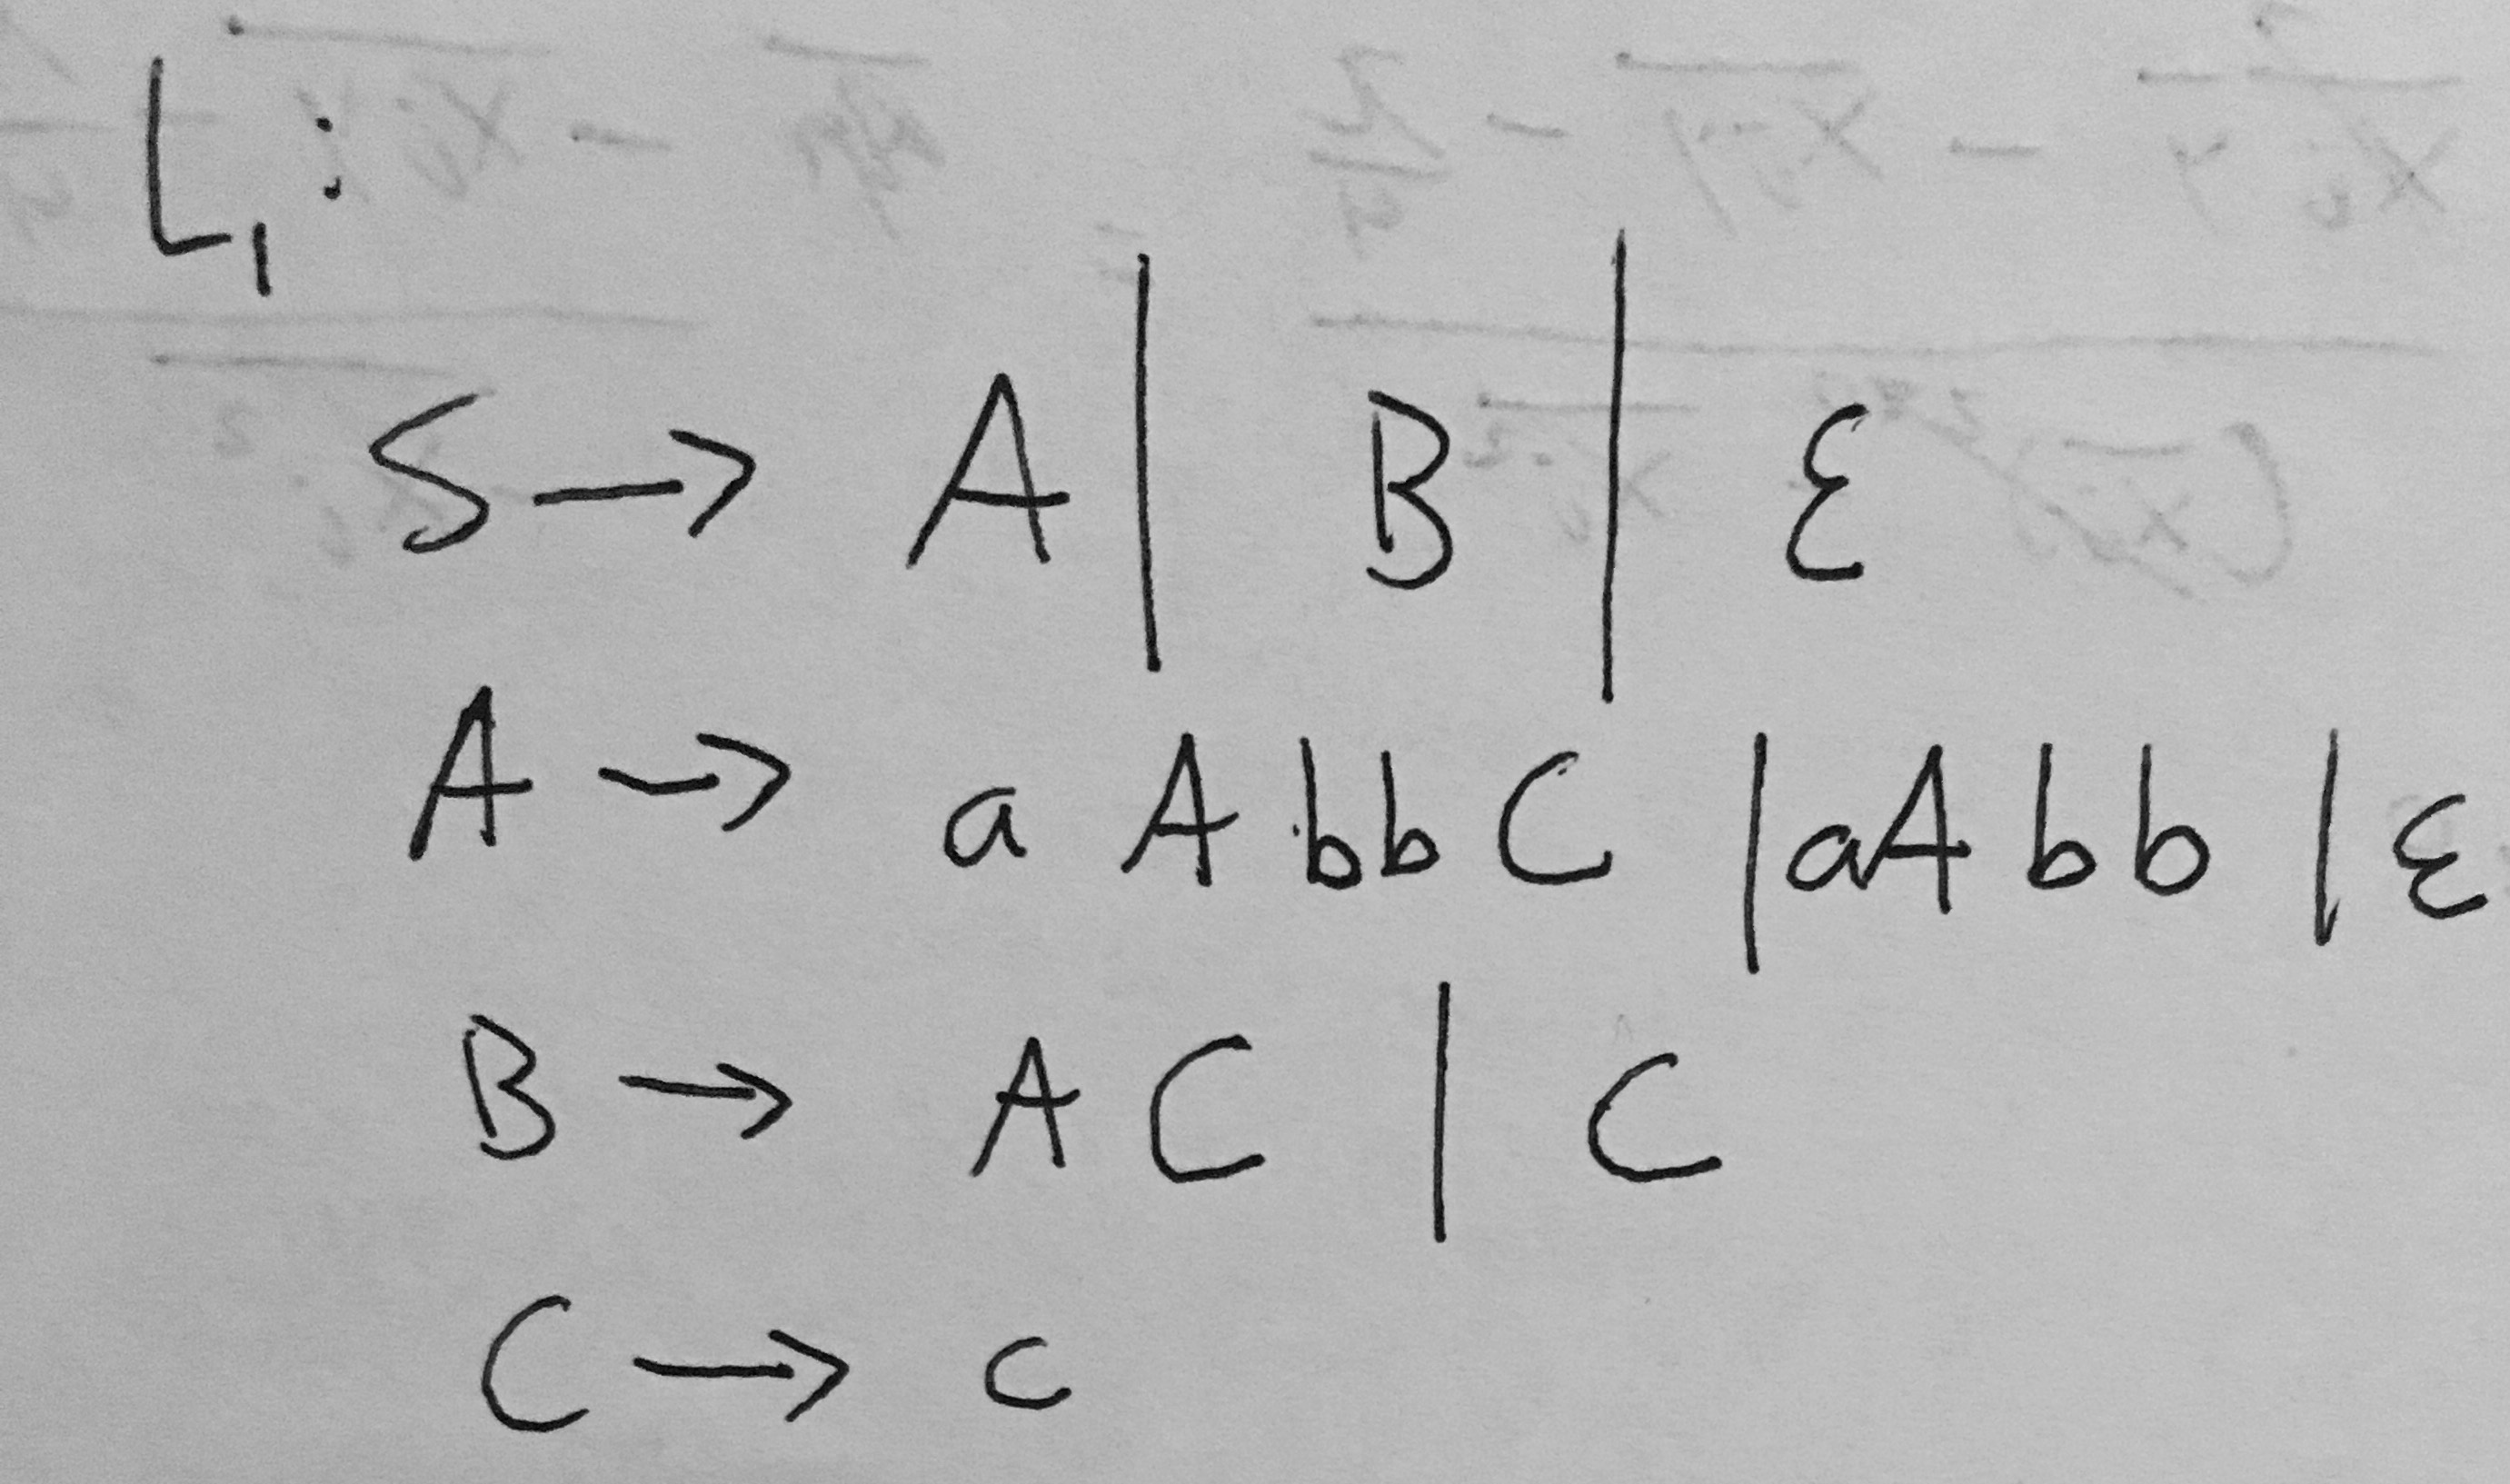 L₁:
S → A | B | ε
A → a A b b C | a A b b | ε
B → A C | C
C → c